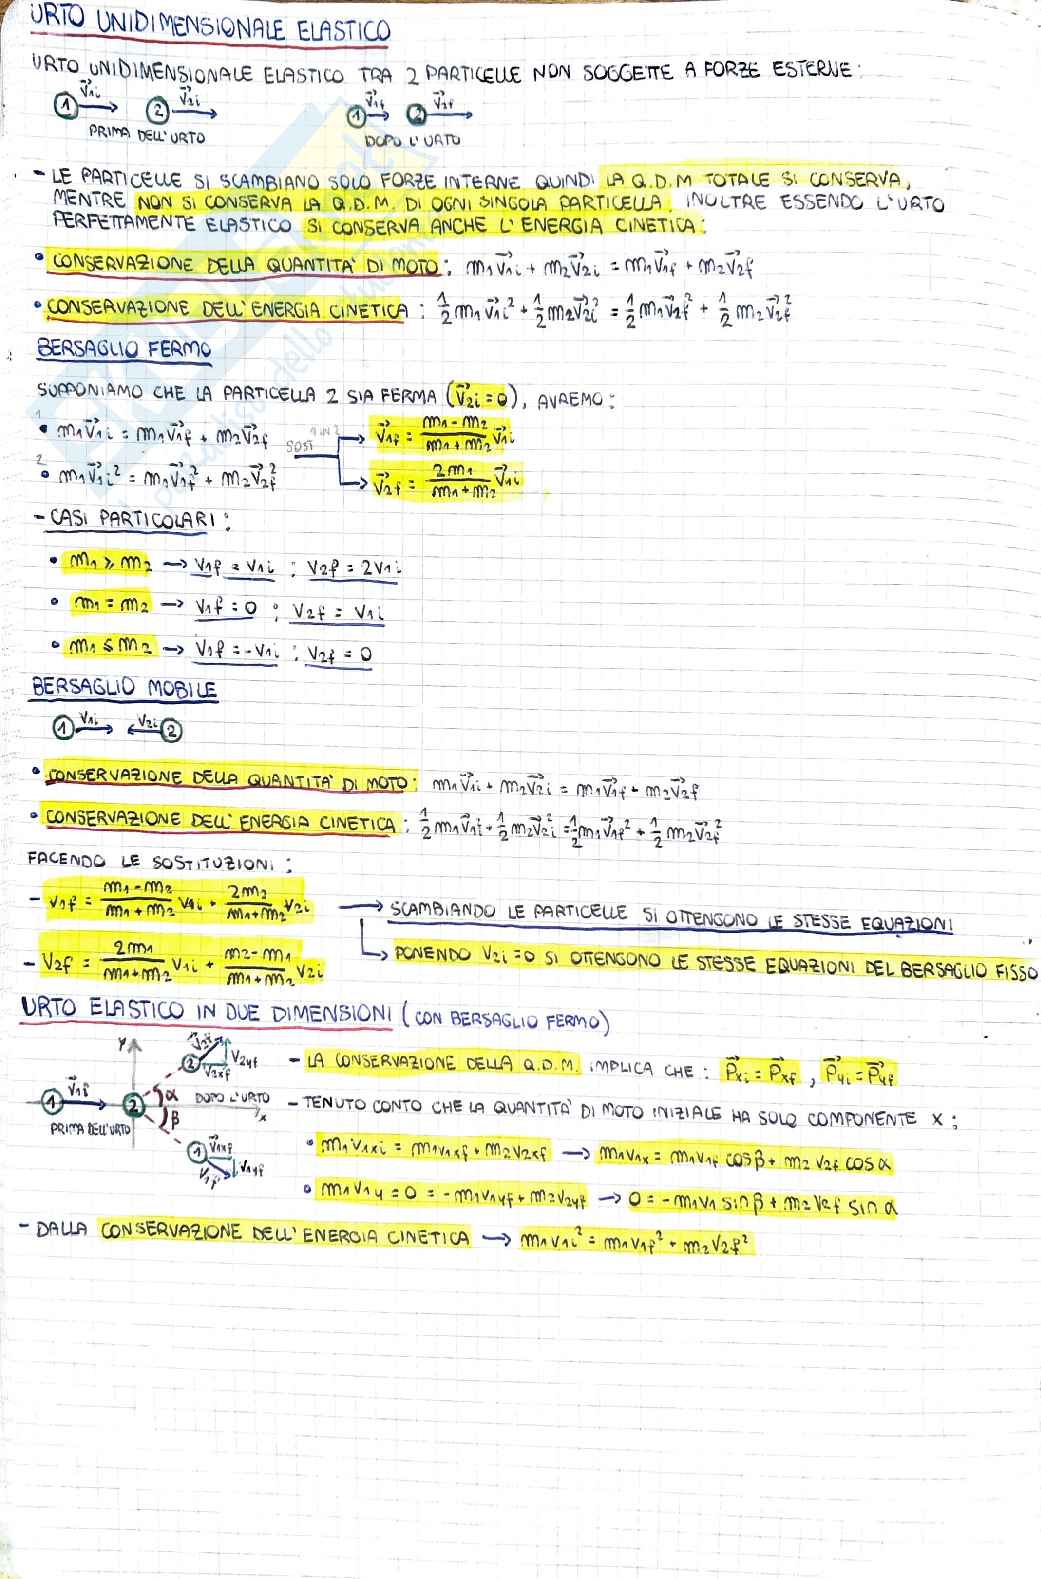 URTO UNIDIMENSIONALE ELASTICO
URTO UNIDIMENSIONALE ELASTICO TRA 2 PARTICELLE NON SOGGETTE A FORZE ESTERNE:
1 v⃗1i 2 v⃗2i 1 v⃗1f 2 v⃗2f
PRIMA DELL'URTO DOPO L'URTO
- LE PARTICELLE SI SCAMBIANO SOLO FORZE INTERNE QUINDI LA Q.D.M TOTALE SI CONSERVA,
MENTRE NON SI CONSERVA LA Q.D.M. DI OGNI SINGOLA PARTICELLA. INOLTRE ESSENDO L'URTO
PERFETTAMENTE ELASTICO SI CONSERVA ANCHE L'ENERGIA CINETICA:
• CONSERVAZIONE DELLA QUANTITA' DI MOTO: m1v⃗1i + m2v⃗2i = m1v⃗1f + m2v⃗2f
• CONSERVAZIONE DELL'ENERGIA CINETICA: 1/2 m1v⃗1i² + 1/2 m2v⃗2i² = 1/2 m1v⃗2f² + 1/2 m2v⃗2f²
BERSAGLIO FERMO
SUPPONIAMO CHE LA PARTICELLA 2 SIA FERMA (v⃗2i = 0), AVREMO:
1 • m1v⃗1i = m1v⃗1f + m2v⃗2f SOST 1 IN 2 → v⃗1f = (m1 - m2)/(m1 + m2) v⃗1i
2 • m1v⃗1i² = m1v⃗1f² + m2v⃗2f² → v⃗2f = 2m1/(m1 + m2) v⃗1i
- CASI PARTICOLARI:
• m1 ≥ m2 → v1f = v1i ; v2f = 2v1i
• m1 = m2 → v1f = 0 ; v2f = v1i
• m1 ≤ m2 → v1f = -v1i ; v2f = 0
BERSAGLIO MOBILE
1 v1i v2i 2
• CONSERVAZIONE DELLA QUANTITA' DI MOTO: m1v⃗1i + m2v⃗2i = m1v⃗1f + m2v⃗2f
• CONSERVAZIONE DELL'ENERGIA CINETICA: 1/2 m1v⃗1i² + 1/2 m2v⃗2i² = 1/2 m1v⃗1f² + 1/2 m2v⃗2f²
FACENDO LE SOSTITUZIONI:
- v1f = (m1 - m2)/(m1 + m2) v1i + 2m2/(m1 + m2) v2i → SCAMBIANDO LE PARTICELLE SI OTTENGONO LE STESSE EQUAZIONI
- v2f = 2m1/(m1 + m2) v1i + (m2 - m1)/(m1 + m2) v2i → PONENDO v2i = 0 SI OTTENGONO LE STESSE EQUAZIONI DEL BERSAGLIO FISSO
URTO ELASTICO IN DUE DIMENSIONI (CON BERSAGLIO FERMO)
y v⃗2f 2 v2yf v2xf
- LA CONSERVAZIONE DELLA Q.D.M. IMPLICA CHE: P⃗xi = P⃗xf , P⃗yi = P⃗yf
1 v⃗1i 2 α β DOPO L'URTO x
PRIMA DELL'URTO
- TENUTO CONTO CHE LA QUANTITA' DI MOTO INIZIALE HA SOLO COMPONENTE X:
1 v⃗1xf v1yf v⃗1f
• m1v1xi = m1v1xf + m2v2xf → m1v1x = m1v1f cosβ + m2 v2f cosα
• m1v1y = 0 = -m1v1yf + m2v2yf → 0 = -m1v1 sinβ + m2v2f sinα
- DALLA CONSERVAZIONE DELL'ENERGIA CINETICA → m1v1i² = m1v1f² + m2v2f²